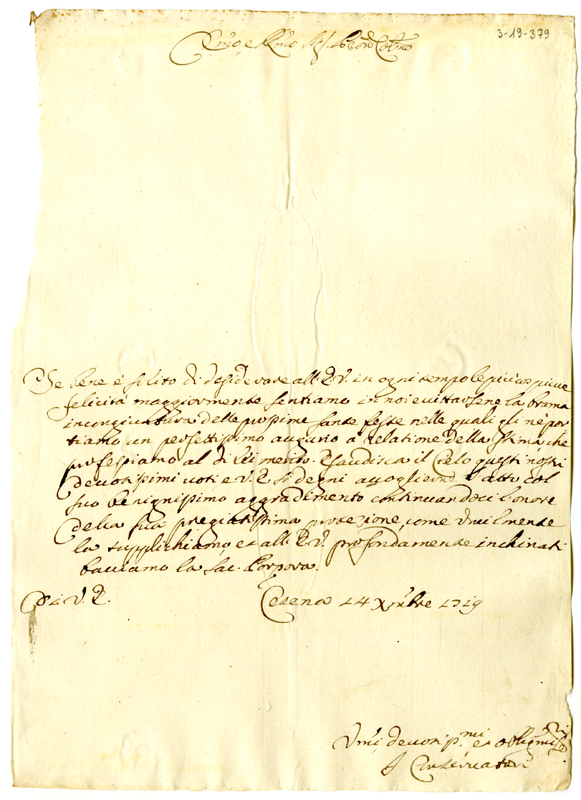 3-19-379
Em̃o, e Rm̃o Sig.r Sig.r Pron Colmo
Se bene è solito di desiderare all'E.V. in ogni tempo le più copiose
felicità maggiormente sentiamo in noi eccitarsene la brama
in congiuntura delle prossime sante feste nelle quali gli ne por
tiamo un perfettissimo augurio a relatione della stima, che
professiamo al di lei merito. Esaudisca il Cielo questi nostri
devotissimi voti e V.E. si degni accogliere l'atto col
suo benignissimo aggradimento continuandoci l'onore
della sua pregiatissima protezione, come umilmente
la supplichiamo et all'E.V. profondamente inchinati
baciamo la Sac. Porpora.
Di V.E.
Cesena 14 Xmbre 1719
Umi, devotis.mi et obblig.mi
I Conservatori